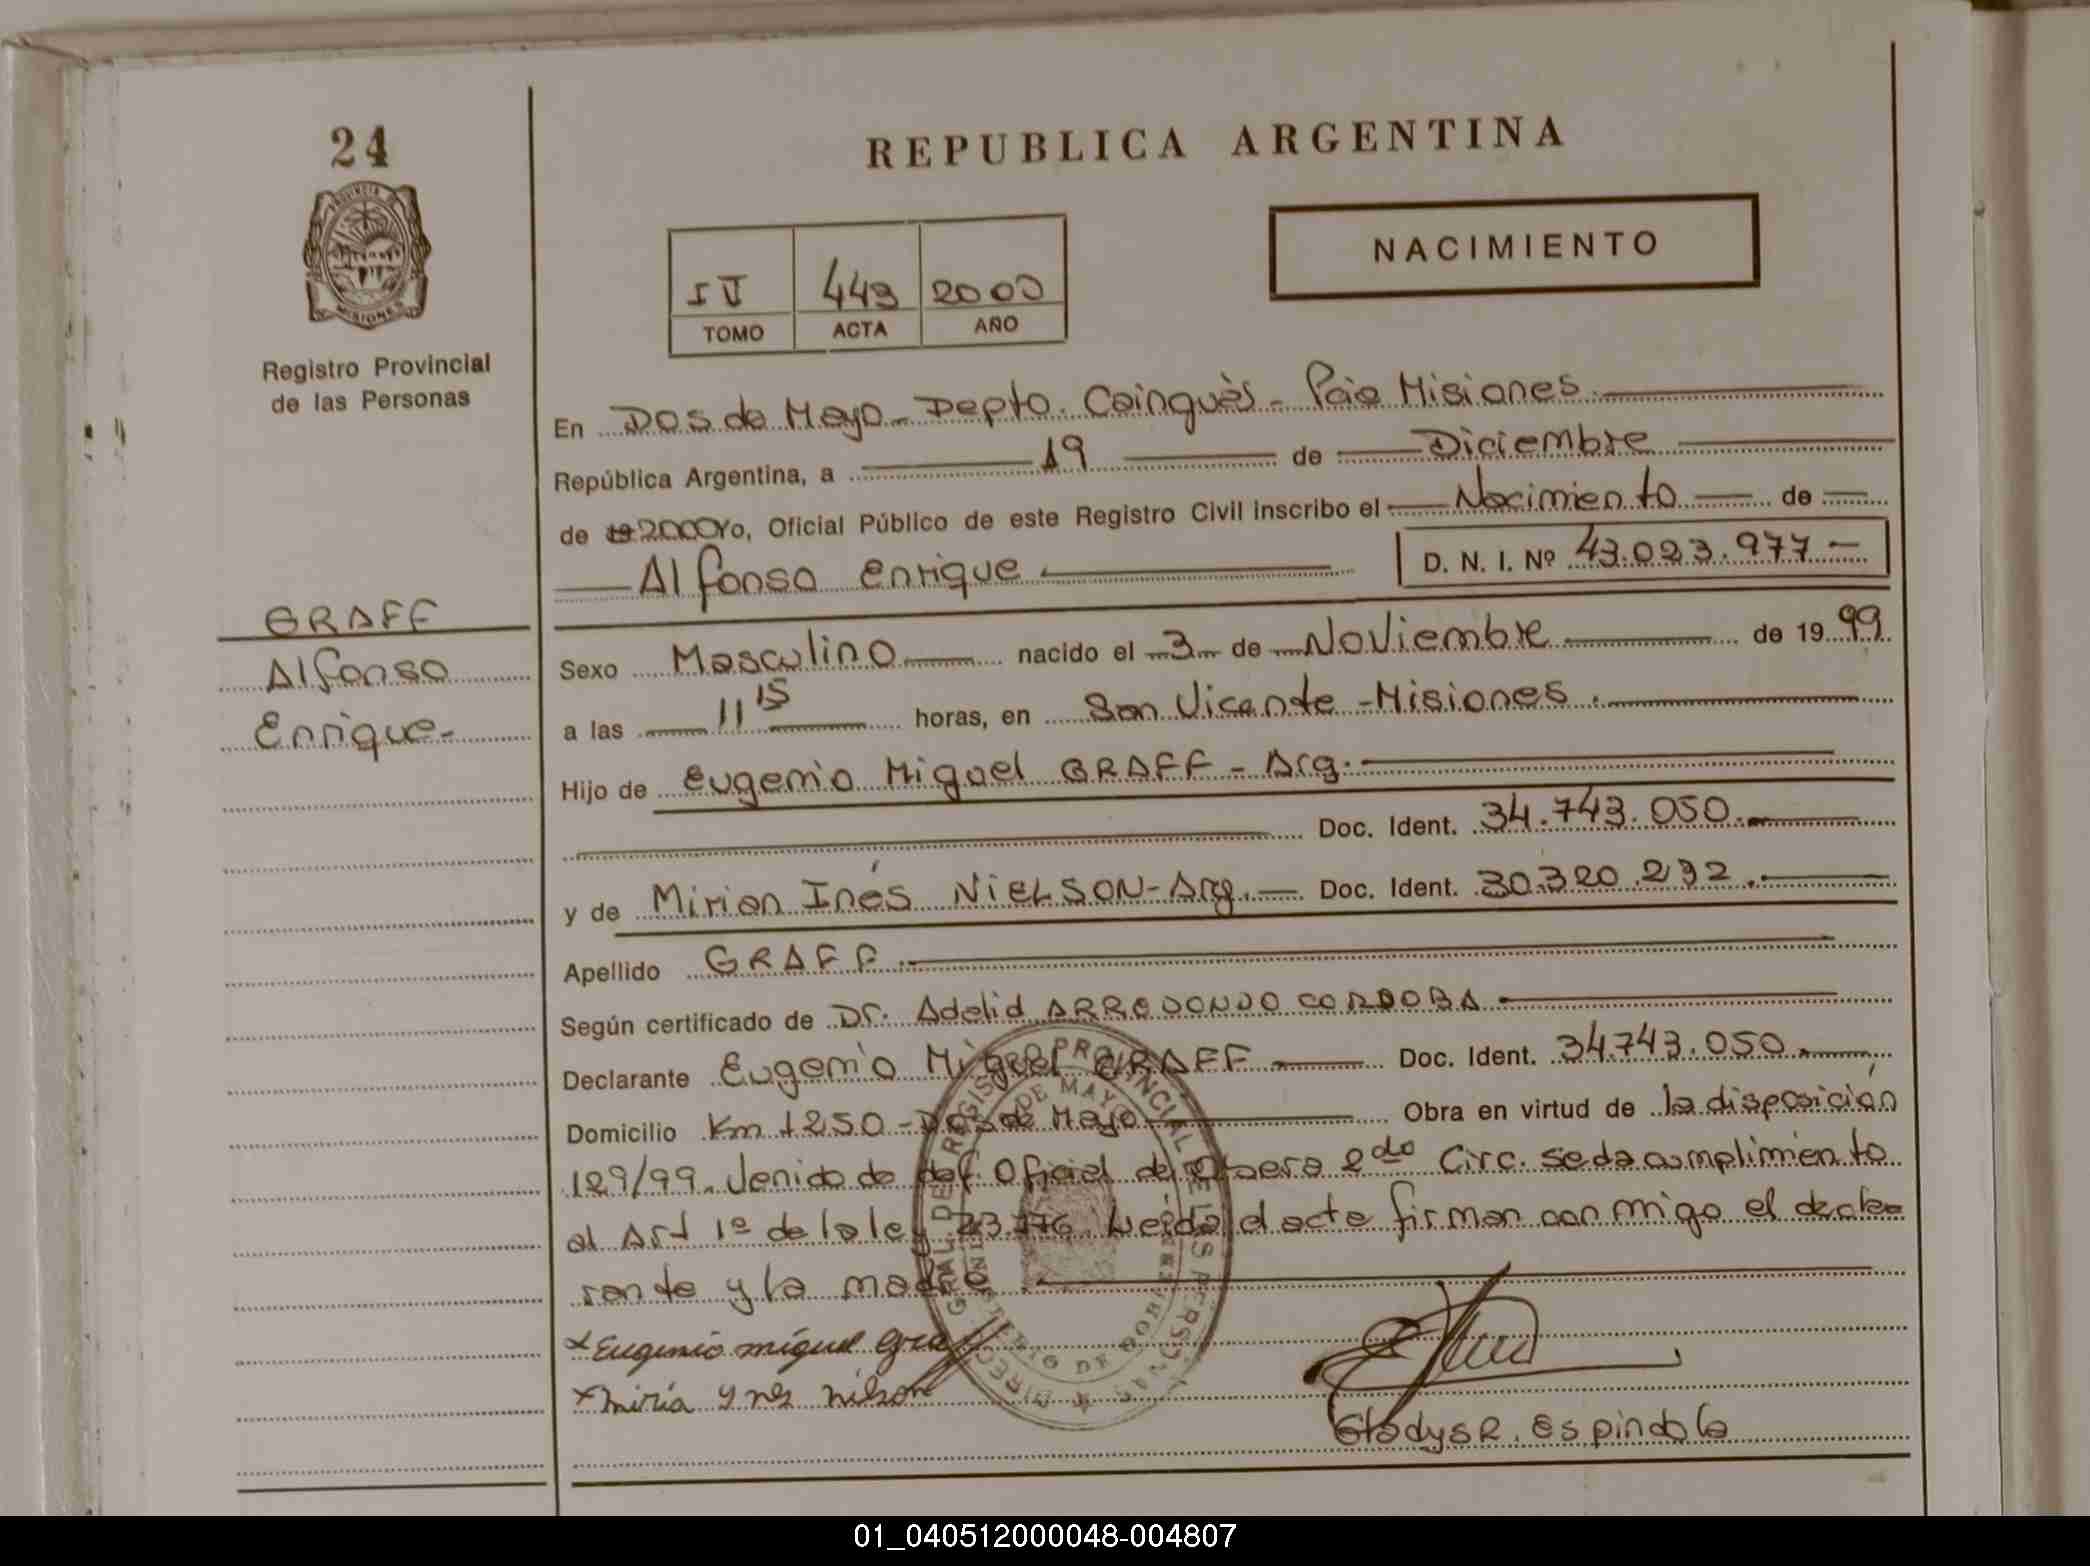 24
REPUBLICA ARGENTINA
PROVINCIA
MISIONES
Registro Provincial
de las Personas
NACIMIENTO
IV 449 2000
TOMO ACTA AÑO
En Dos de Mayo - Depto. Cainguàs - Pcia Misiones.
República Argentina, a 19 de Diciembre
de 19 2000 Yo, Oficial Público de este Registro Civil inscribo el Nacimiento de
Alfonso Enrique D. N. I. Nº 43.023.977 -
GRAFF
Alfonso
Enrique-
Sexo Masculino nacido el 3 de Noviembre de 19 99
a las 11 15 horas, en San Vicente - Misiones.
Hijo de Eugenio Miguel GRAFF - Arg.
Doc. Ident. 34.743.050.
y de Mirian Inés NIELSON - Arg. Doc. Ident. 30.320.232.
Apellido GRAFF.
Según certificado de Dr. Adelid ARREDONDO CORDOBA
Declarante Eugenio Miguel GRAFF Doc. Ident. 34.743.050.
Domicilio Km 1250 - Dos de Mayo Obra en virtud de la disposición
129/99. Venido de def. Oficial de Obera 2do Circ. se da cumplimiento
al Art 1º de la ley 23.776. Leida el acta firman conmigo el decla-
rante y la madre.
x Eugenio miguel Graff
x miria ynes nilson
Gladys R. Espindola
01_040512000048-004807